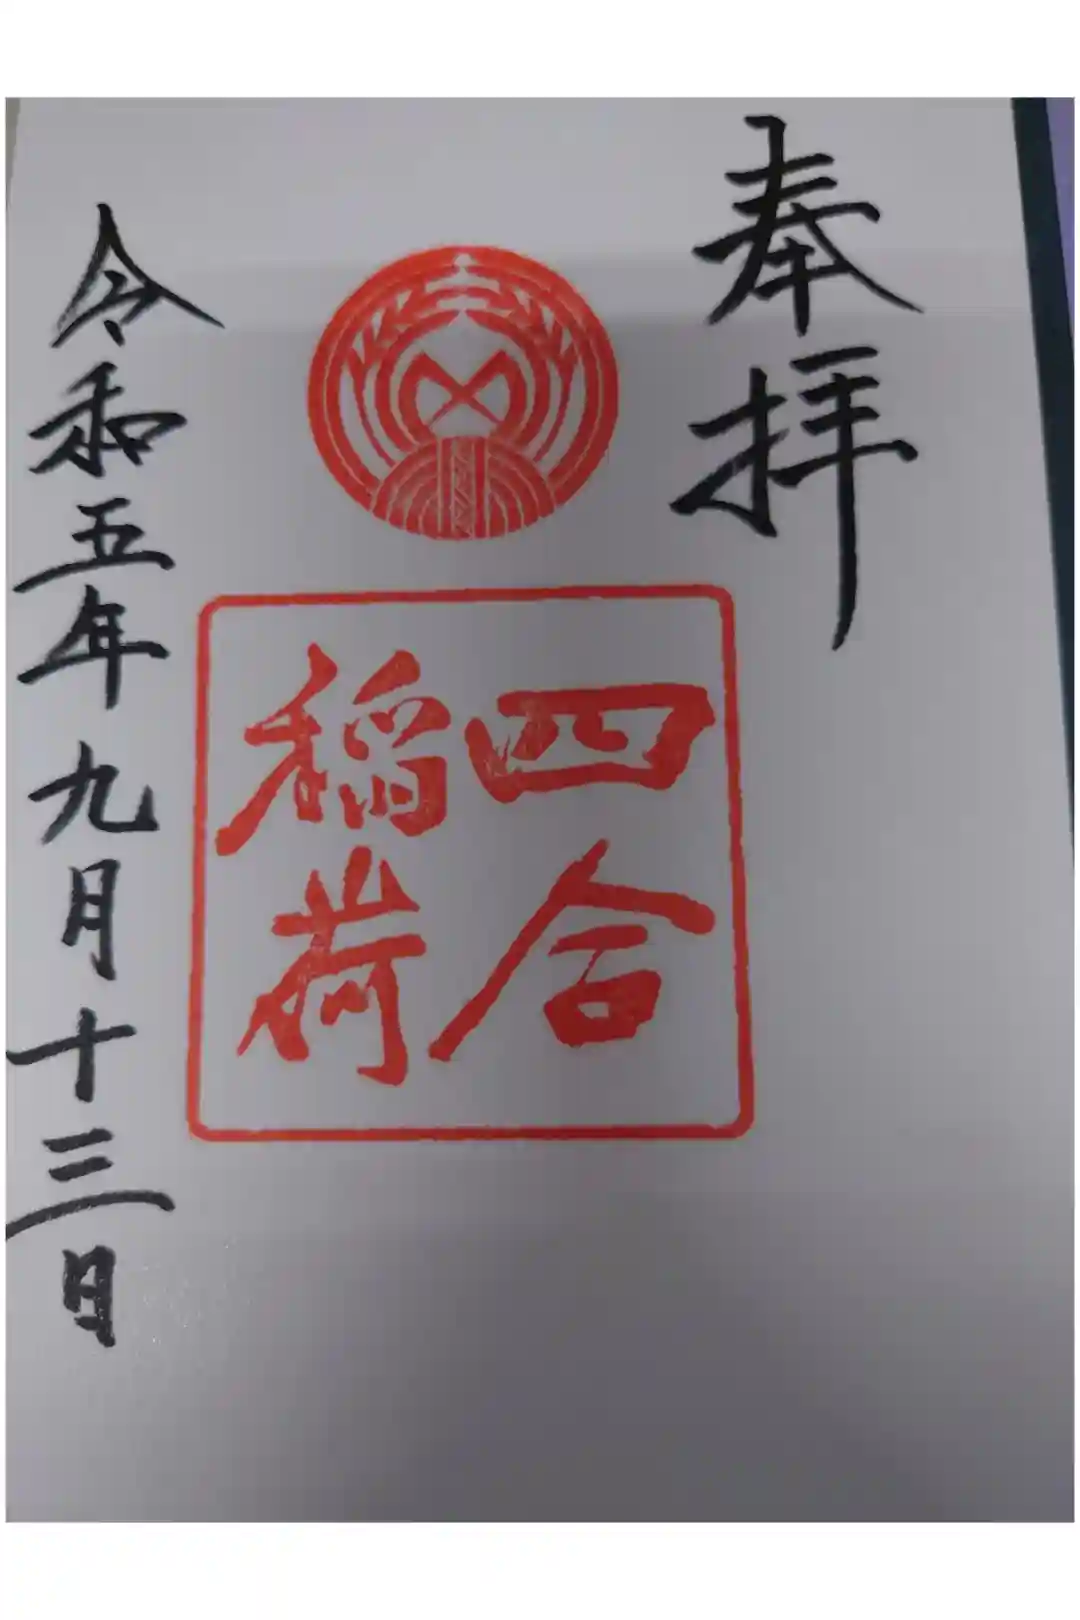 奉拝
四合
稲荷
令和五年九月十三日